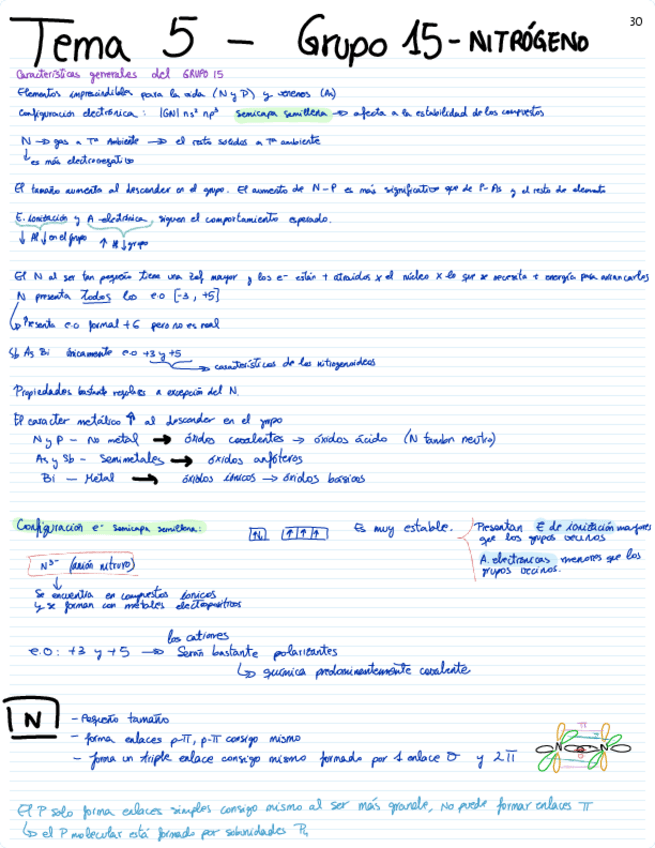 30
Tema 5 - Grupo 15 - NITRÓGENO
Características generales del GRUPO 15
Elementos imprescindibles para la vida (N y P) y venenos (As)
Configuración electrónica: |GN| ns² np³ semicapa semillena → afecta a la estabilidad de los compuestos
N → gas a Tª Ambiente → el resto solidos a Tª ambiente
↳ es más electronegativo
El tamaño aumenta al descender en el grupo. El aumento de N-P es más significativo que de P-As y el resto de elementos
E. ionización y A electrónica, siguen el comportamiento esperado.
↓ Al ↓ en el grupo ↑ Al ↓ grupo
El N al ser tan pequeño tiene una Zef mayor y los e⁻ están + atraidos x el núcleo x lo que se necesita + energía para arrancarlos
N presenta Todos los e.o [-3, +5]
↳ Presenta e.o formal +6 pero no es real
Sb As Bi únicamente e.o +3 y +5
→ características de los nitrogenoideos
Propiedades bastante regulares a excepción del N.
El caracter metálico ↑ al descender en el grupo
N y P - No metal → óxidos covalentes → óxidos ácido (N tambn neutro)
As y Sb - Semimetales → óxidos anfóteros
Bi - Metal → óxidos iónicos → óxidos básicos
Configuración e⁻ semicapa semillena: ↑↓ ↑ ↑ ↑ Es muy estable.
Presentan E de ionización mayores
que los grupos vecinos
A. electrónicas menores que los
grupos vecinos.
N³⁻ (anión nitruro)
↓
Se encuentra en compuestos iónicos
y se forman con metales electropositivos
los cationes
e.o: +3 y +5 → Serán bastante polarizantes
↳ química predominantemente covalente
N
- Pequeño tamaño
- forma enlaces p-π, p-π consigo mismo
- forma un triple enlace consigo mismo formado por 1 enlace σ y 2π
π
N N
El P solo forma enlaces simples consigo mismo al ser más grande, No puede formar enlaces π
↳ el P molecular está formado por subunidades P₄